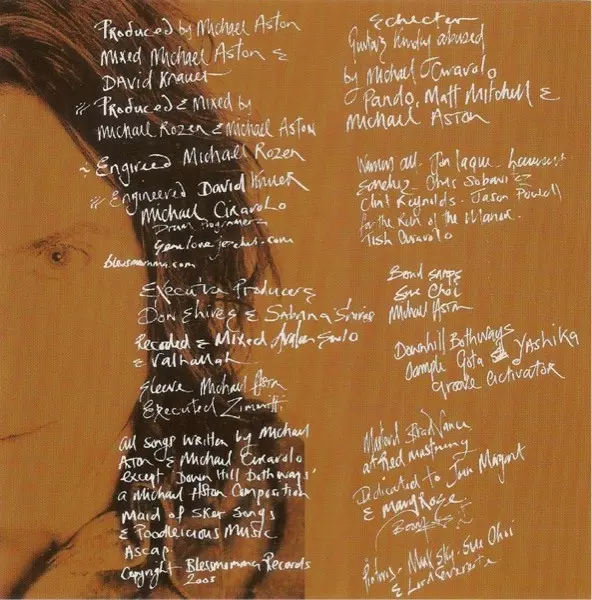 Produced by Michael Aston
Mixed Michael Aston &
David Knauer
Produced & Mixed by
Michael Rozen & Michael Aston
Michael Rozen
Engineered David Knauer
Michael Ciravolo
Drum Programmer
genelovesjezebel.com
blessmomma.com
Executive Producers
Don Shires & Sabrina Shires
Recoded & Mixed Avalon
& Valhallah
Sleeve Michael Aston
Executed
All songs written by Michael
Aton & Michael Ciravolo
except 'Down Hill Bothways'
a Michael Aston Composition
Maid of Sker Songs
& Poodlelicious Music
Ascap.
Copyright Blessmomma Records
2003
Guitars Kindly abused
by Michael Ciravolo
Pando, Matt Mitchell &
Michael Aston
Jon
Sanchez - Chris
Clint Reynolds - Jason Powell
for the Run of the Manor.
Tish Ciravolo
Band snaps
Sue Choi
Michael Aston
Downhill Bothways
Sample Yashika
Groove activator
Brad Vance
at Red Mastering
Dedicated to Margaret
& Mary Rose
Pictures - Sky - Sue Choi
&